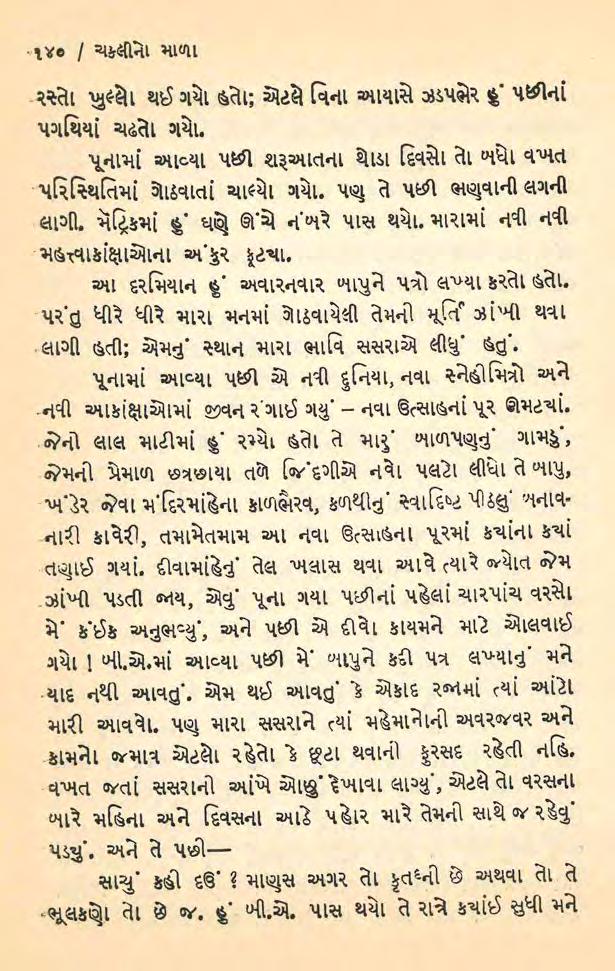 ૧૪૦ / ચકલીનો માળા
રસ્તો ખુલ્લો થઈ ગયો હતો; એટલે વિના આયાસે ઝડપભેર હું પછીનાં
પગથિયાં ચઢતો ગયો.
પૂનામાં આવ્યા પછી શરૂઆતના થોડા દિવસો તો બધો વખત
પરિસ્થિતિમાં ગોઠવાતાં ચાલ્યો ગયો. પણ તે પછી ભણવાની લગની
લાગી. મૅટ્રિકમાં હું ઘણે ઊંચે નંબરે પાસ થયો. મારામાં નવી નવી
મહત્ત્વાકાંક્ષાઓના અંકુર ફૂટ્યા.
આ દરમિયાન હું અવારનવાર બાપુને પત્રો લખ્યા કરતો હતો.
પરંતુ ધીરે ધીરે મારા મનમાં ગોઠવાયેલી તેમની મૂર્તિ ઝાંખી થવા
લાગી હતી; એમનું સ્થાન મારા ભાવિ સસરાએ લીધું હતું.
પૂનામાં આવ્યા પછી એ નવી દુનિયા, નવા સ્નેહીમિત્રો અને
નવી આકાંક્ષાઓમાં જીવન રંગાઈ ગયું – નવા ઉત્સાહનાં પૂર ઊમટ્યાં.
જેની લાલ માટીમાં હું રમ્યો હતો તે મારું બાળપણનું ગામડું,
જેમની પ્રેમાળ છત્રછાયા તળે જિંદગીએ નવો પલટો લીધો તે બાપુ,
ખંડેર જેવા મંદિરમાંહેના કાળભૈરવ, કળથીનું સ્વાદિષ્ટ પીઠલું બનાવ-
નારી કાવેરી, તમામેતમામ આ નવા ઉત્સાહના પૂરમાં કયાંના કયાં
તણાઈ ગયાં. દીવામાંહેનું તેલ ખલાસ થવા આવે ત્યારે જ્યોત જેમ
ઝાંખી પડતી જાય, એવું પૂના ગયા પછીનાં પહેલાં ચારપાંચ વરસો
મેં કંઈક અનુભવ્યું, અને પછી એ દીવો કાયમને માટે ઓલવાઈ
ગયો ! બી.એ.માં આવ્યા પછી મેં બાપુને કદી પત્ર લખ્યાનું મને
યાદ નથી આવતું. એમ થઈ આવતું કે એકાદ રજામાં ત્યાં આંટો
મારી આવવો. પણ મારા સસરાને ત્યાં મહેમાનોની અવરજવર અને
કામનો જમાવ એટલો રહેતો કે છૂટા થવાની ફુરસદ રહેતી નહિ.
વખત જતાં સસરાની આંખે ઓછું દેખાવા લાગ્યું, એટલે તો વરસના
બારે મહિના અને દિવસના આઠે પહોર મારે તેમની સાથે જ રહેવું
પડ્યું. અને તે પછી—
સાચું કહી દઉં ? માણુસ અગર તો કૃતઘ્ની છે અથવા તો તે
ભૂલકણો તો છે જ. હું બી.એ. પાસ થયો તે રાત્રે કયાંઈ સુધી મને